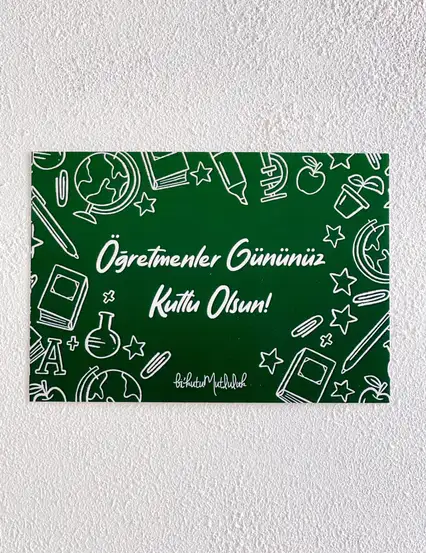 Öğretmenler Gününüz
Kutlu Olsun!
bi'kutuMutluluk
A